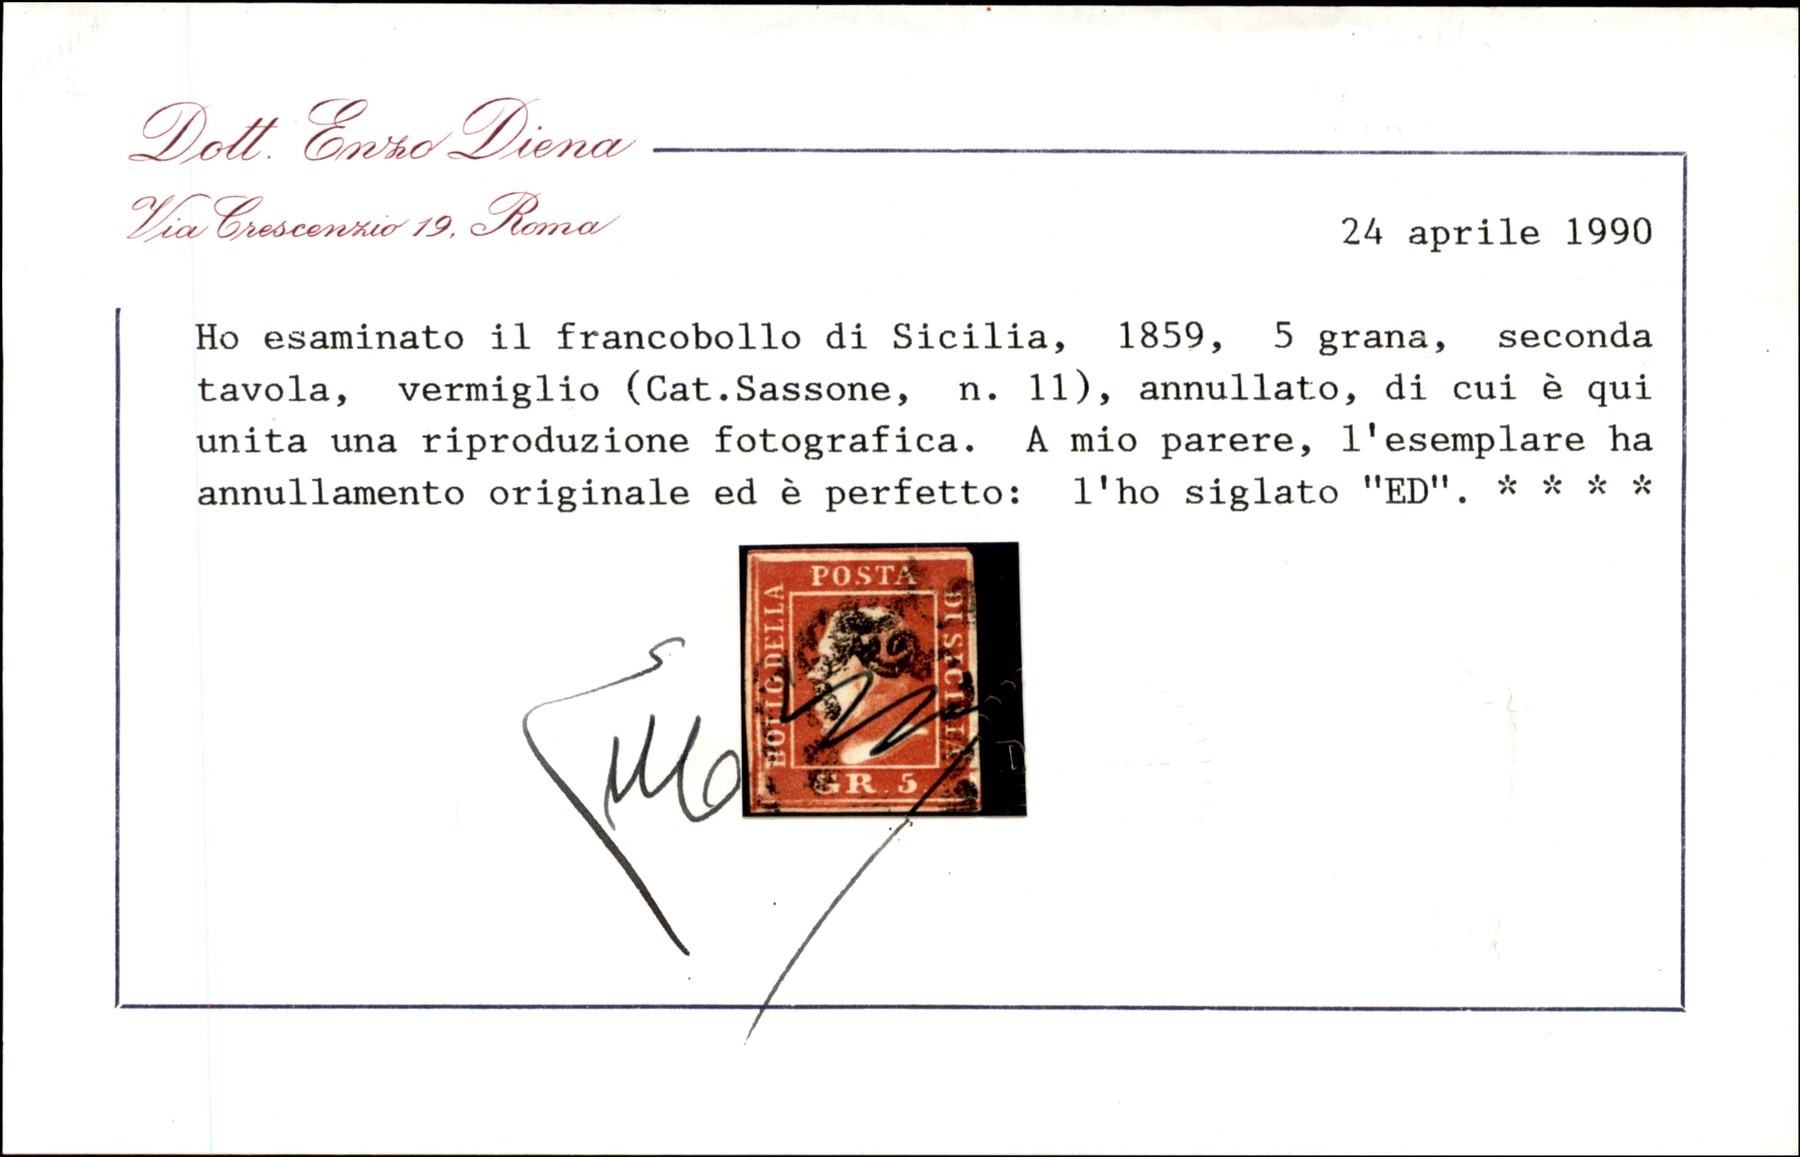 Dott. Enzo Diena
Via Crescenzio 19, Roma
24 aprile 1990
Ho esaminato il francobollo di Sicilia, 1859, 5 grana, seconda
tavola, vermiglio (Cat.Sassone, n. 11), annullato, di cui è qui
unita una riproduzione fotografica. A mio parere, l'esemplare ha
annullamento originale ed è perfetto: l'ho siglato "ED". * * * *
POSTA
BOLLO DELLA
DI SICILIA
GR. 5.